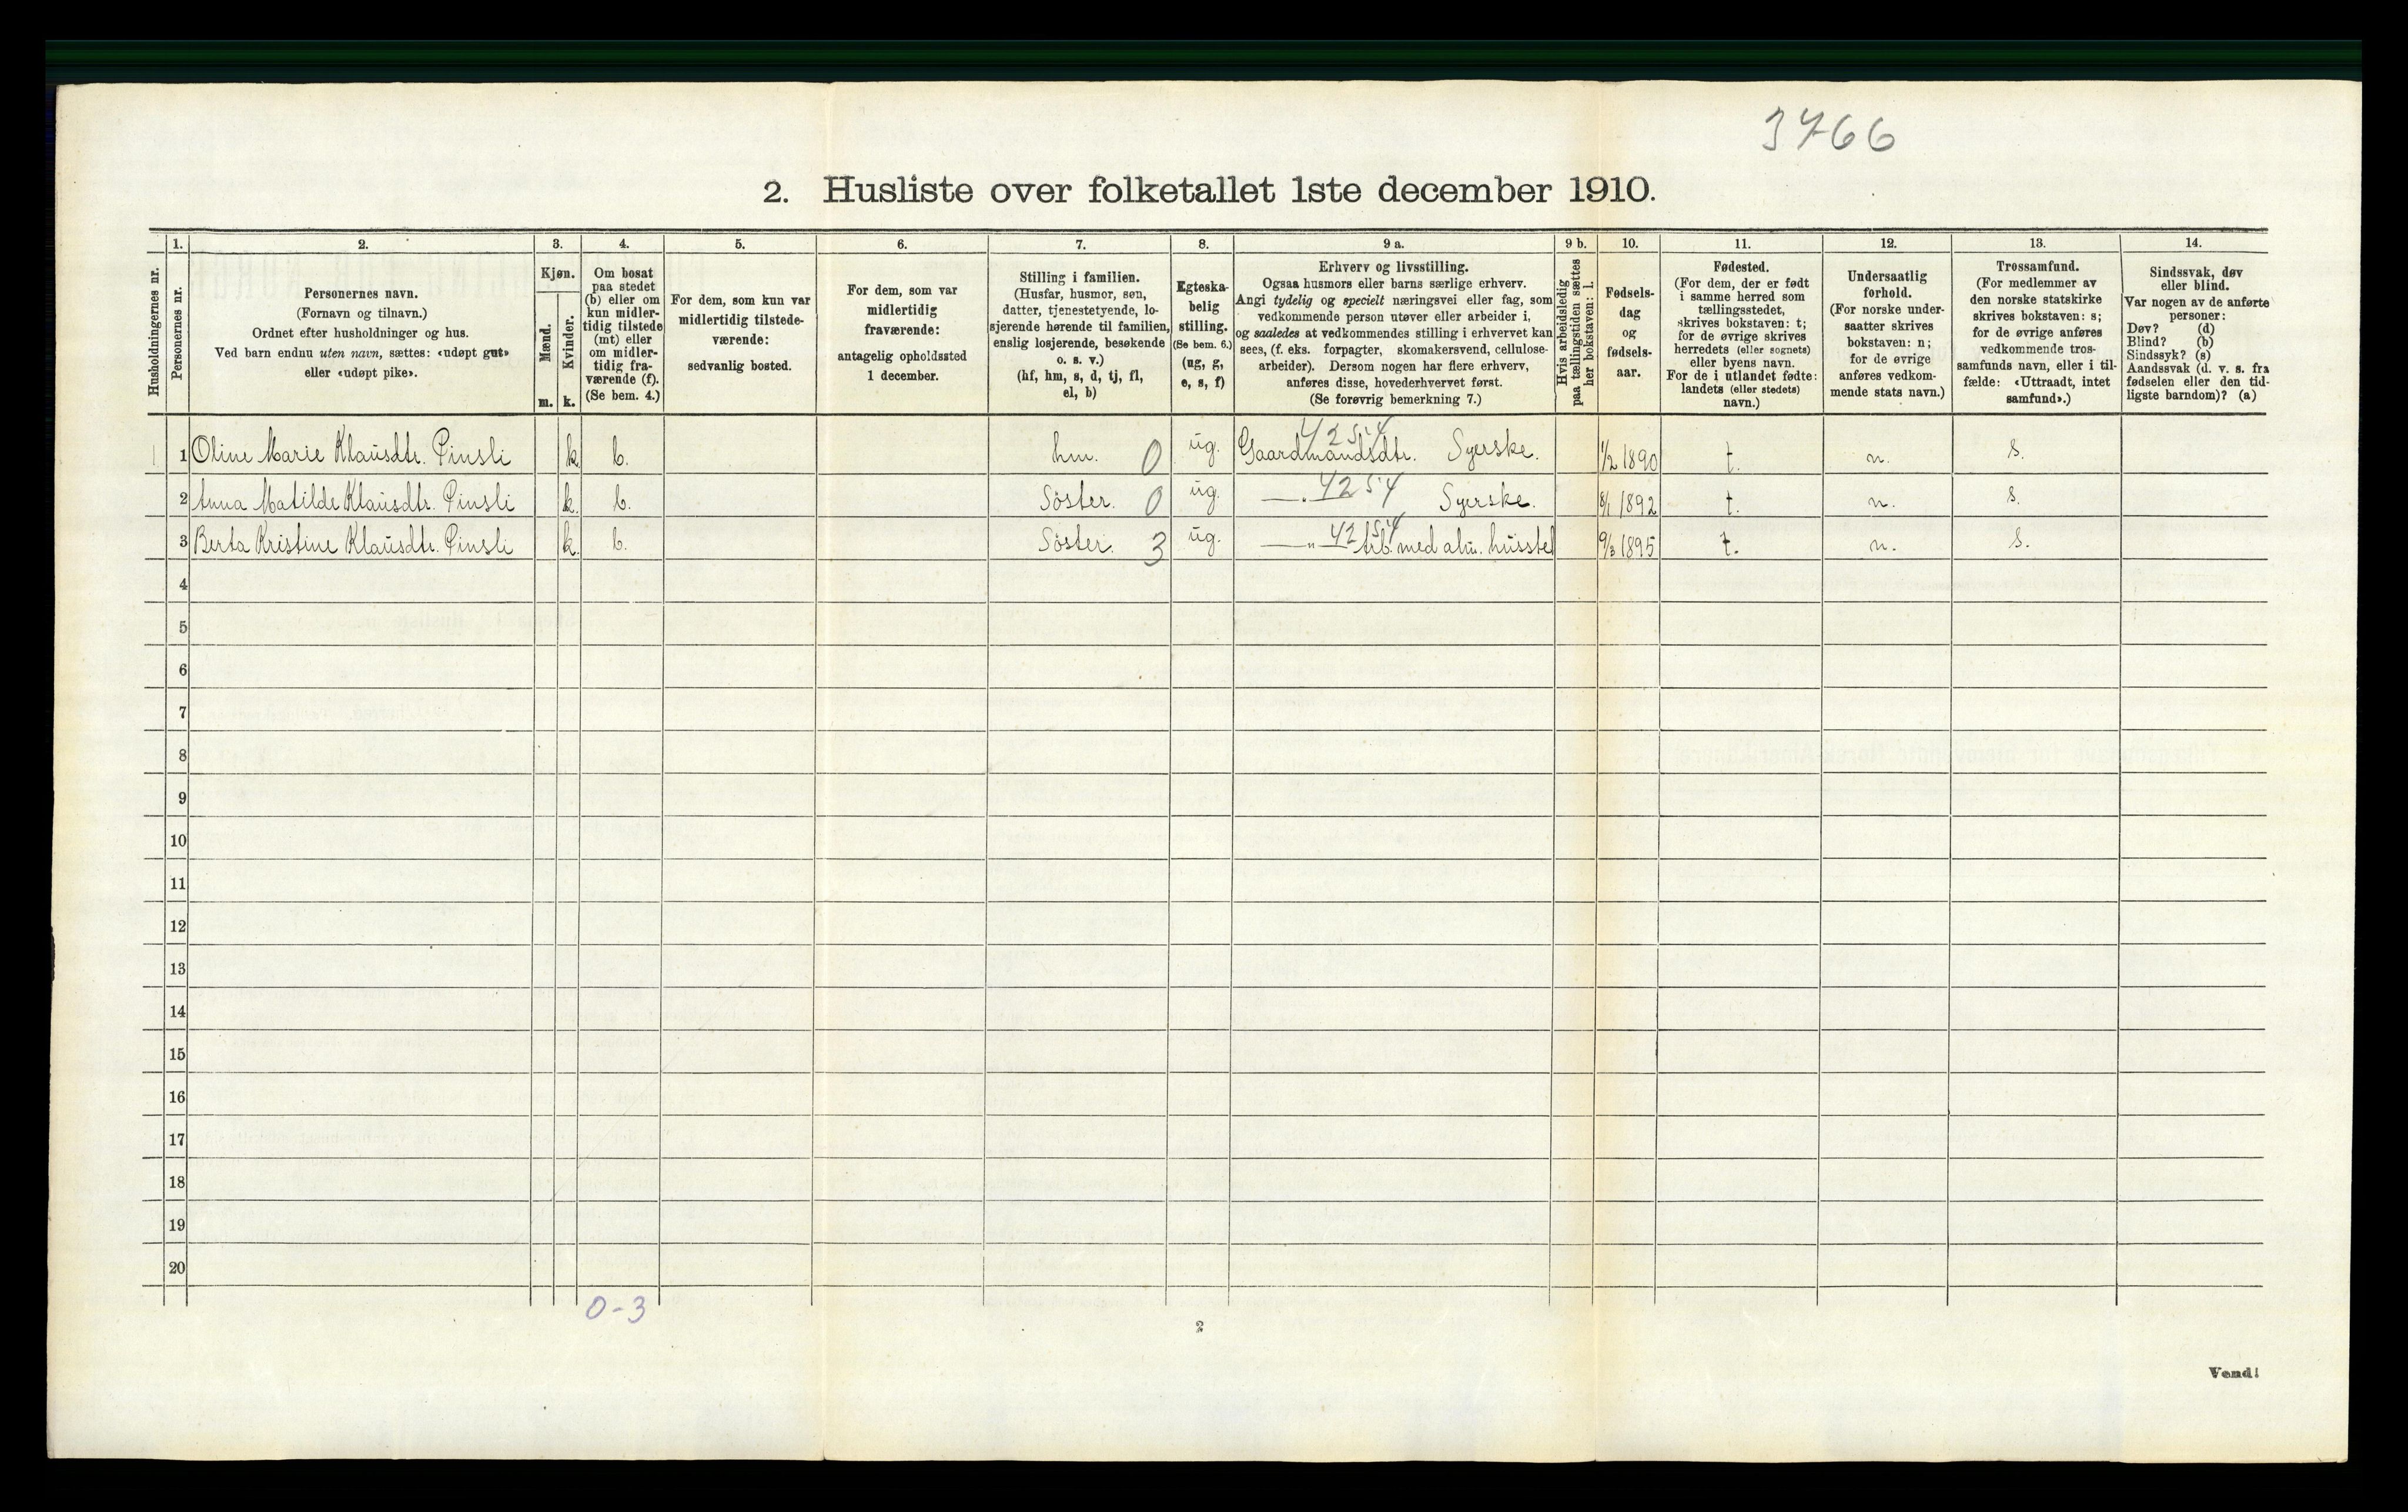 3766
2. Husliste over folketallet 1ste december 1910.
Husholdningernes nr.
1.
Personernes nr.
2.
Personernes navn.
(Fornavn og tilnavn.)
Ordnet efter husholdninger og hus.
Ved barn endnu uten navn, sættes: «udøpt gut»
eller «udøpt pike».
3.
Kjøn.
Mænd.
Kvinder.
m. k.
4.
Om bosat
paa stedet
(b) eller om
kun midler-
tidig tilstede
(mt) eller
om midler-
tidig fra-
værende (f).
(Se bem. 4.)
5.
For dem, som kun var
midlertidig tilstede-
værende:
sedvanlig bosted.
6.
For dem, som var
midlertidig
fraværende:
antagelig opholdssted
1 december.
7.
Stilling i familien.
(Husfar, husmor, søn,
datter, tjenestetyende, lo-
sjerende hørende til familien,
enslig losjerende, besøkende
o. s. v.)
(hf, hm, s, d, tj, fl,
el, b)
8.
Egteska-
belig
stilling.
(Se bem. 6.)
(ug, g,
e, s, f)
9 a.
Erhverv og livsstilling.
Ogsaa husmors eller barns særlige erhverv.
Angi tydelig og specielt næringsvei eller fag, som
vedkommende person utøver eller arbeider i,
og saaledes at vedkommendes stilling i erhvervet kan
sees, (f. eks. forpagter, skomakersvend, cellulose-
arbeider). Dersom nogen har flere erhverv,
anføres disse, hovederhvervet først.
(Se forøvrig bemerkning 7.)
9 b.
Hvis arbeidsledig
paa tællingstiden sættes
her bokstaven: l.
10.
Fødsels-
dag
og
fødsels-
aar.
11.
Fødested.
(For dem, der er født
i samme herred som
tællingsstedet,
skrives bokstaven: t;
for de øvrige skrives
herredets (eller sognets)
eller byens navn.
For de i utlandet fødte:
landets (eller stedets)
navn.)
12.
Undersaatlig
forhold.
(For norske under-
saatter skrives
bokstaven: n;
for de øvrige
anføres vedkom-
mende stats navn.)
13.
Trossamfund.
(For medlemmer av
den norske statskirke
skrives bokstaven: s;
for de øvrige anføres
vedkommende tros-
samfunds navn, eller i til-
fælde: «Uttraadt, intet
samfund».)
14.
Sindssvak, døv
eller blind.
Var nogen av de anførte
personer:
Døv? (d)
Blind? (b)
Sindssyk? (s)
Aandssvak (d. v. s. fra
fødselen eller den tid-
ligste barndom)? (a)
1 1 Oline Marie Klausdtr. Pinsli k. b. hm. 0 ug. Gaardmandsdtr. 4254 Syerske. 1/2 1890 t. n. s.
2 Anna Matilde Klausdtr. Pinsli k. b. Søster. 0 ug. —„— 4254 Syerske. 8/1 1892 t. n. s.
3 Berta Kristine Klausdtr. Pinsli k. b. Søster. 3 ug. —„— 4254 arb. med alm. husstel 9/3 1895 t. n. s.
4
5
6
7
8
9
10
11
12
13
14
15
16
17
18
19
20
0-3
2
Vend!